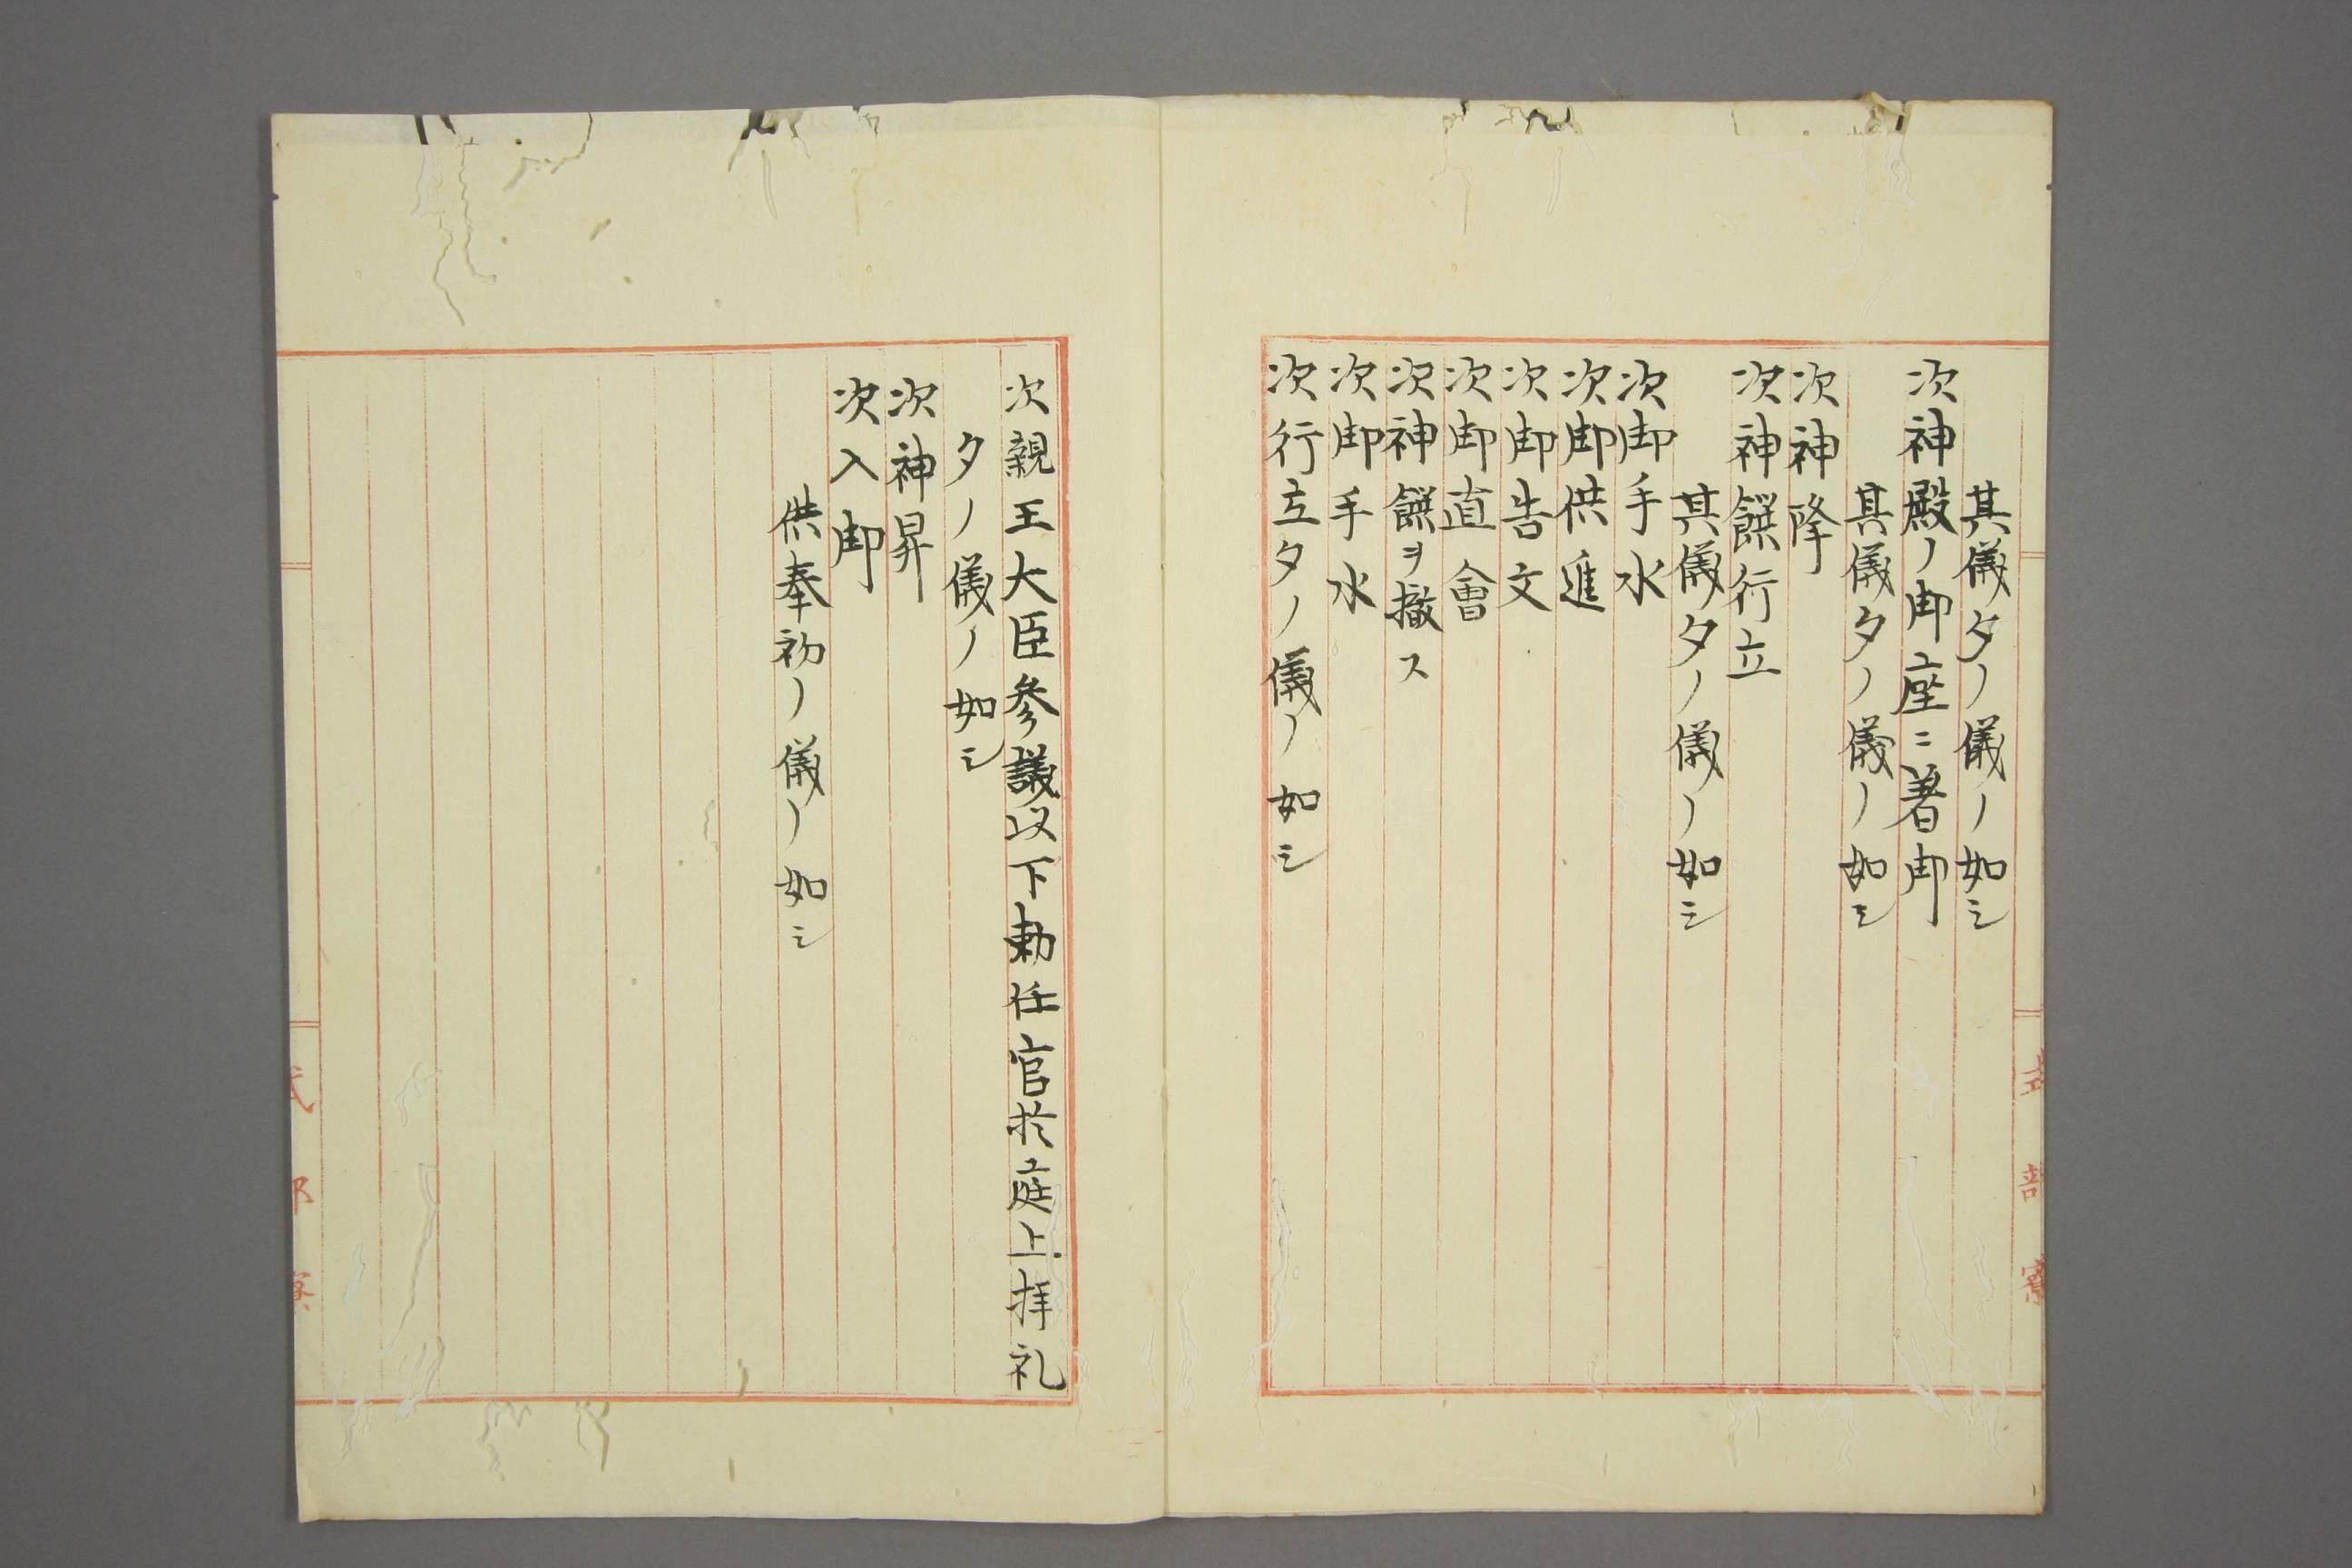 其儀夕ノ儀ノ如シ
次神殿ノ御座ニ著御
其儀夕ノ儀ノ如シ
次神降
次神饌行立
其儀夕ノ儀ノ如シ
次御手水
次御供進
次御告文
次御直會
次神饌ヲ撤ス
次御手水
次行立夕ノ儀ノ如シ
式部寮
次親王大臣参議以下勅任官於庭上拝礼
夕ノ儀ノ如シ
次神昇
次入御
供奉初ノ儀ノ如シ
式部寮